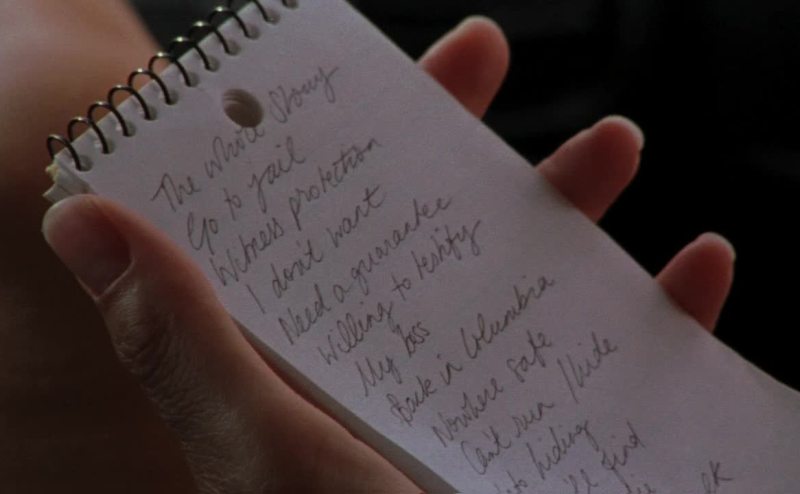 The whole Story
Go to jail
Witness protection
I don't want
Need a guarantee
Willing to testify
My boss
Back in Columbia
Nowhere safe
Can't run / hide
into hiding
find